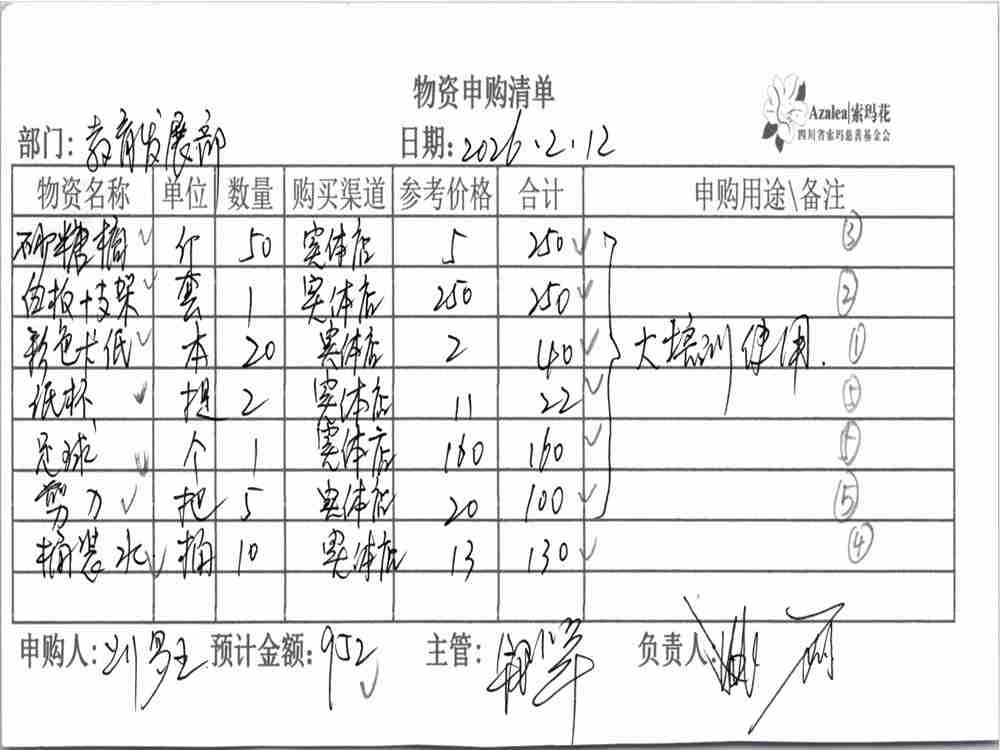 物资申购清单
Azalea|索玛花
四川省索玛慈善基金会
部门: 教育发展部 日期: 2026.2.12
物资名称 单位 数量 购买渠道 参考价格 合计 申购用途\备注
砂糖橘 斤 50 实体店 5 250 ③
白板+支架 套 1 实体店 250 250 ②
彩色卡纸 本 20 实体店 2 40 大培训使用. ①
纸杯 提 2 实体店 11 22 ⑤
足球 个 1 实体店 160 160
剪刀 把 5 实体店 20 100 ⑤
桶装水 桶 10 实体店 13 130 ④
申购人: 预计金额: 952 主管: 负责人: